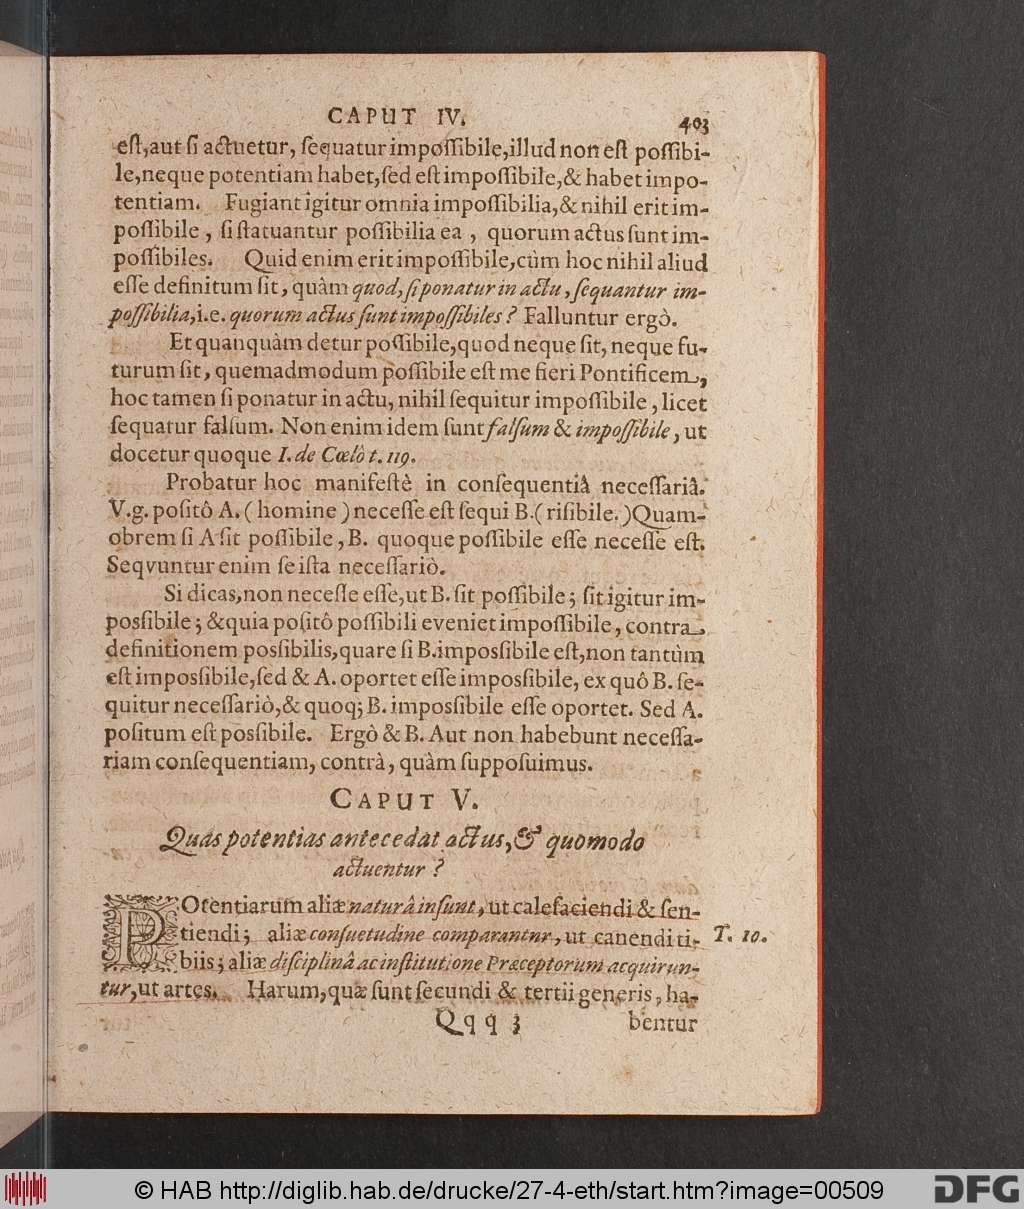 CAPUT IV. 403
eſt,aut ſi actuetur, ſequatur impoſſibile,illud non eſt poſſibi-
le,neque potentiam habet,ſed eſt impoſſibile,& habet impo-
tentiam. Fugiant igitur omnia impoſſibilia,& nihil erit im-
poſſibile , ſi ſtatuantur poſſibilia ea , quorum actus ſunt im-
poſſibiles. Quid enim erit impoſſibile,cùm hoc nihil aliud
eſſe definitum ſit, quàm quod, ſi ponatur in actu, ſequantur im-
poſſibilia,i.e. quorum actus ſunt impoſſibiles? Falluntur ergò.
Et quanquàm detur poſſibile,quod neque ſit, neque fu-
turum ſit, quemadmodum poſſibile eſt me fieri Pontificem,
hoc tamen ſi ponatur in actu, nihil ſequitur impoſſibile, licet
ſequatur falſum. Non enim idem ſunt falſum & impoſſibile, ut
docetur quoque I. de Cœlô t. 119.
Probatur hoc manifeſtè in conſequentiâ neceſſariâ.
V.g. poſitô A. ( homine ) neceſſe eſt ſequi B.( riſibile. ) Quam-
obrem ſi A ſit poſſibile, B. quoque poſſibile eſſe neceſſe eſt.
Seqvuntur enim ſe iſta neceſſariò.
Si dicas,non neceſſe eſſe,ut B. ſit poſſibile; ſit igitur im-
posſibile; & quia poſitô poſſibili eveniet impoſſibile, contra
definitionem posſibilis,quare ſi B.imposſibile eſt,non tantùm
eſt imposſibile,ſed & A. oportet eſſe imposſibile, ex quô B. ſe-
quitur neceſſariò,& quoq; B. imposſibile eſſe oportet. Sed A.
poſitum eſt posſibile. Ergò & B. Aut non habebunt neceſſa-
riam conſequentiam, contrà, quàm ſuppoſuimus.
CAPUT V.
Quas potentias antecedat actus, & quomodo
actuentur ?
POtentiarum aliæ naturâ inſunt, ut calefaciendi & ſen-
tiendi; aliæ conſuetudine comparantur, ut canendi ti- T. 10.
biis; aliæ diſciplinâ ac inſtitutione Præceptorum acquirun-
tur,ut artes. Harum,quæ ſunt ſecundi & tertii generis, ha-
Qqq 3 bentur
© HAB http://diglib.hab.de/drucke/27-4-eth/start.htm?image=00509 DFG